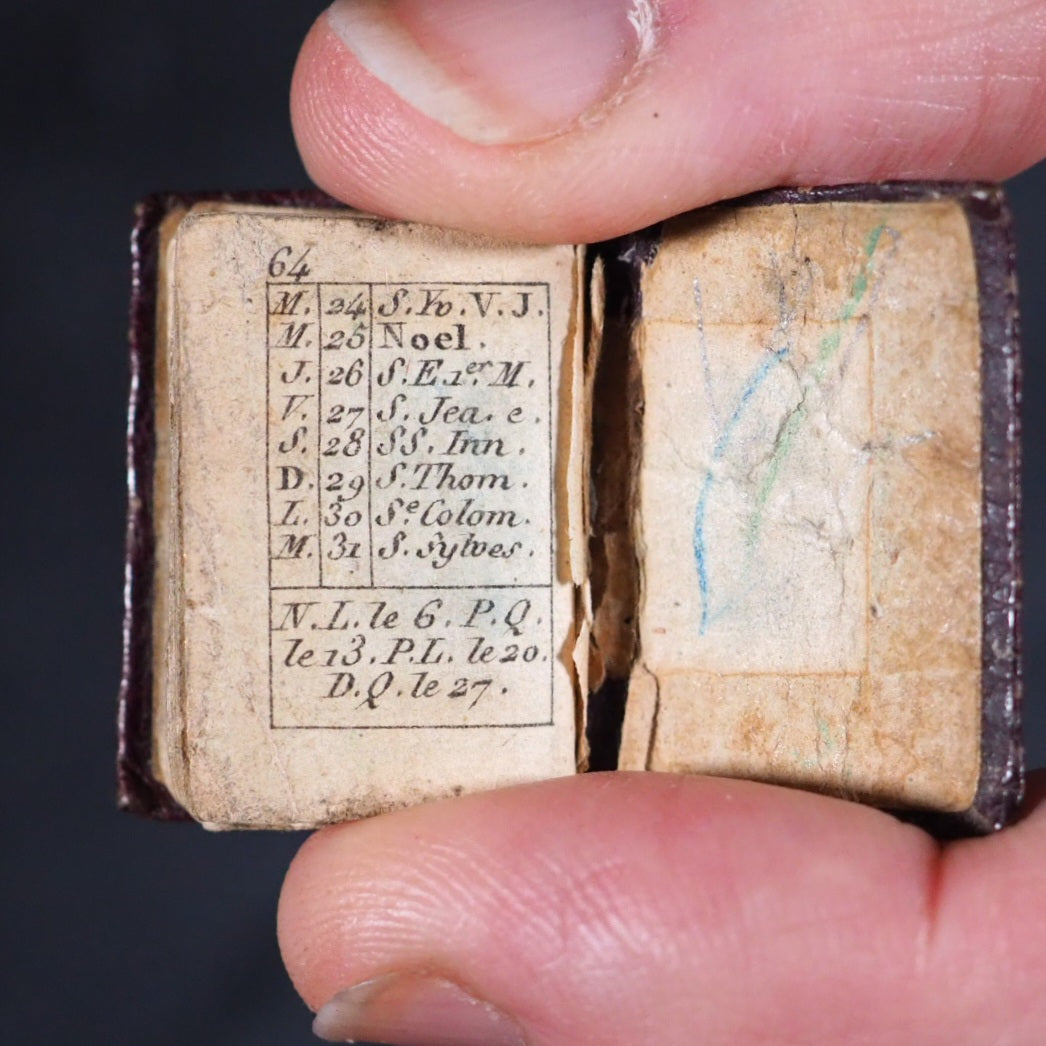 64
M. 24 S. Yv. V. J.
M. 25 Noel.
J. 26 S. E. 1er. M.
V. 27 S. Jea. e.
S. 28 SS. Inn.
D. 29 S. Thom.
L. 30 Se. Colom.
M. 31 S. Sylves.
N. L. le 6. P. Q.
le 13. P. L. le 20.
D. Q. le 27.